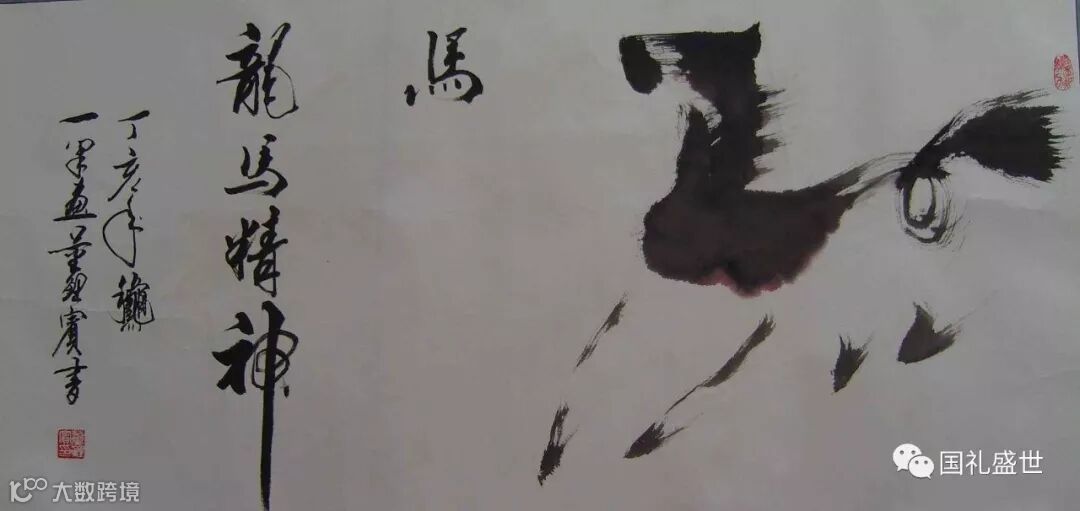 馬
龍馬精神
丁亥年龝
一畫賓書
国礼盛世
10100 大数跨境